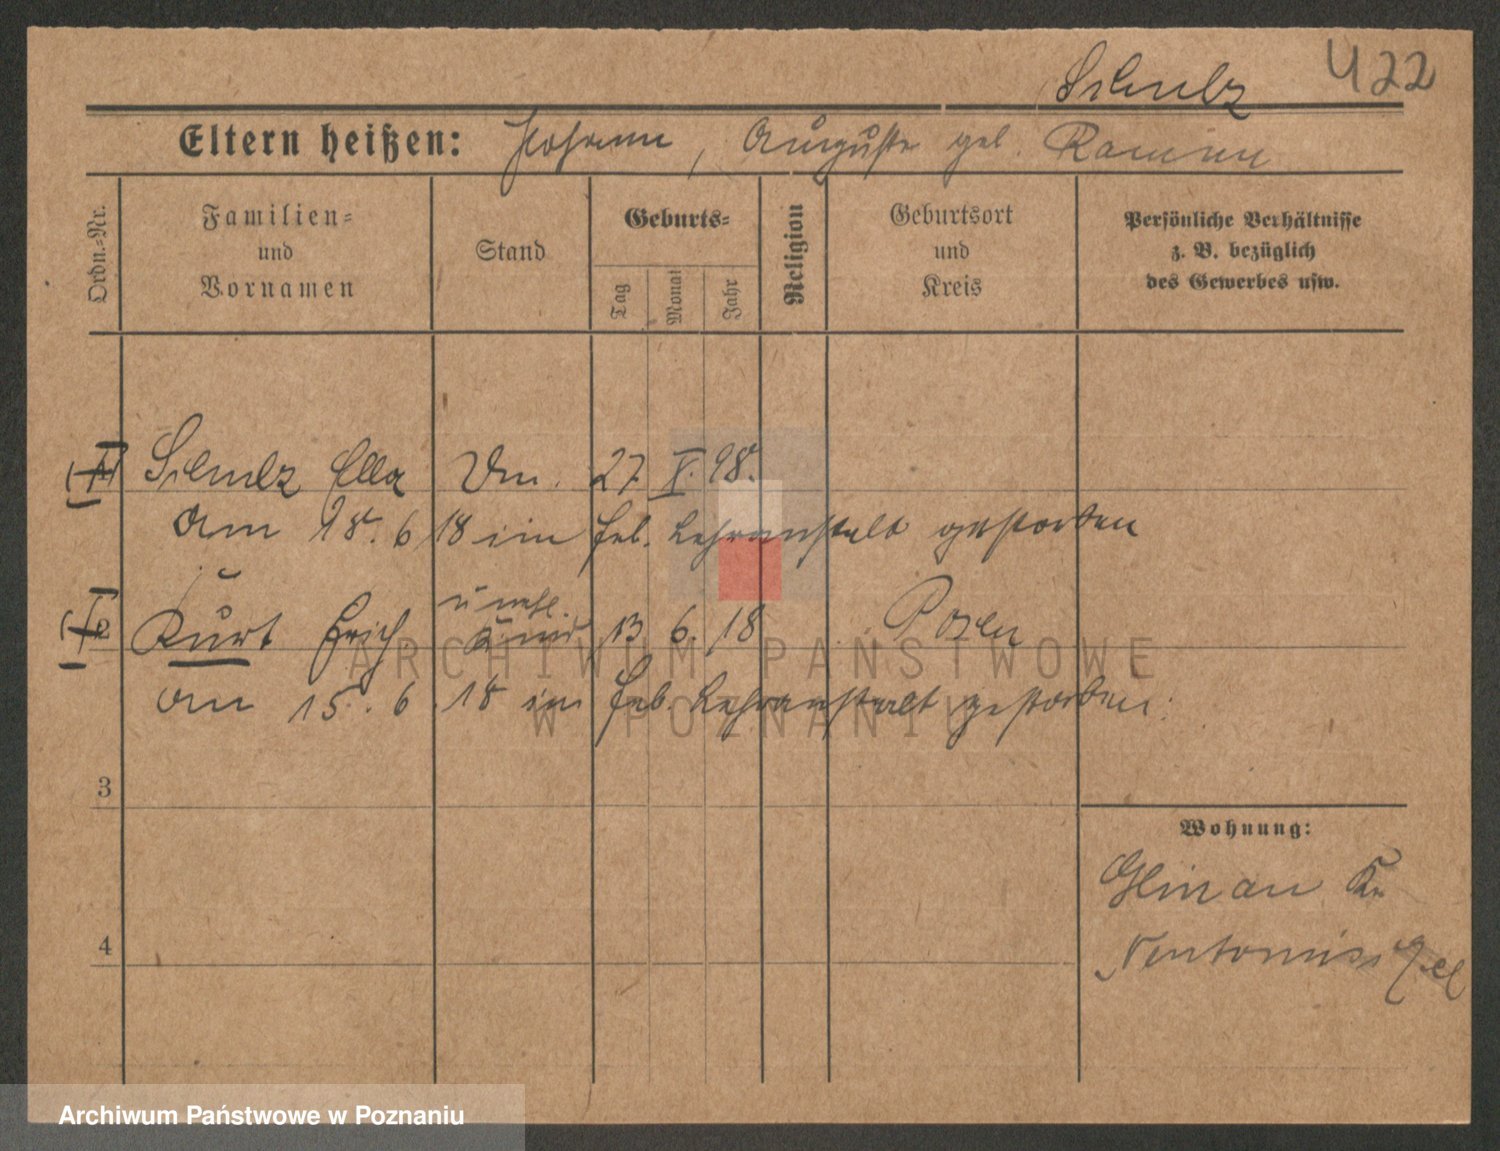 Schulz 422
Eltern heißen: Johann, Auguste geb. Ramm
Ordn.=Nr.
Familien=
und
Vornamen
Stand
Geburts=
Tag
Monat
Jahr
Religion
Geburtsort
und
Kreis
Persönliche Verhältnisse
z. B. bezüglich
des Gewerbes usw.
Schulz Ella 27 V. 98.
am 18. 6 18 im Heb. Lehranstalt gestorben
2 Kurt Erich unehl. Kind 13 6. 18 Posen
am 15. 6 18 im Heb. Lehranstalt gestorben.
ARCHIWUM PAŃSTWOWE
W POZNANIU
3
Wohnung:
Glinau Kr.
4
Neutomischel
Archiwum Państwowe w Poznaniu